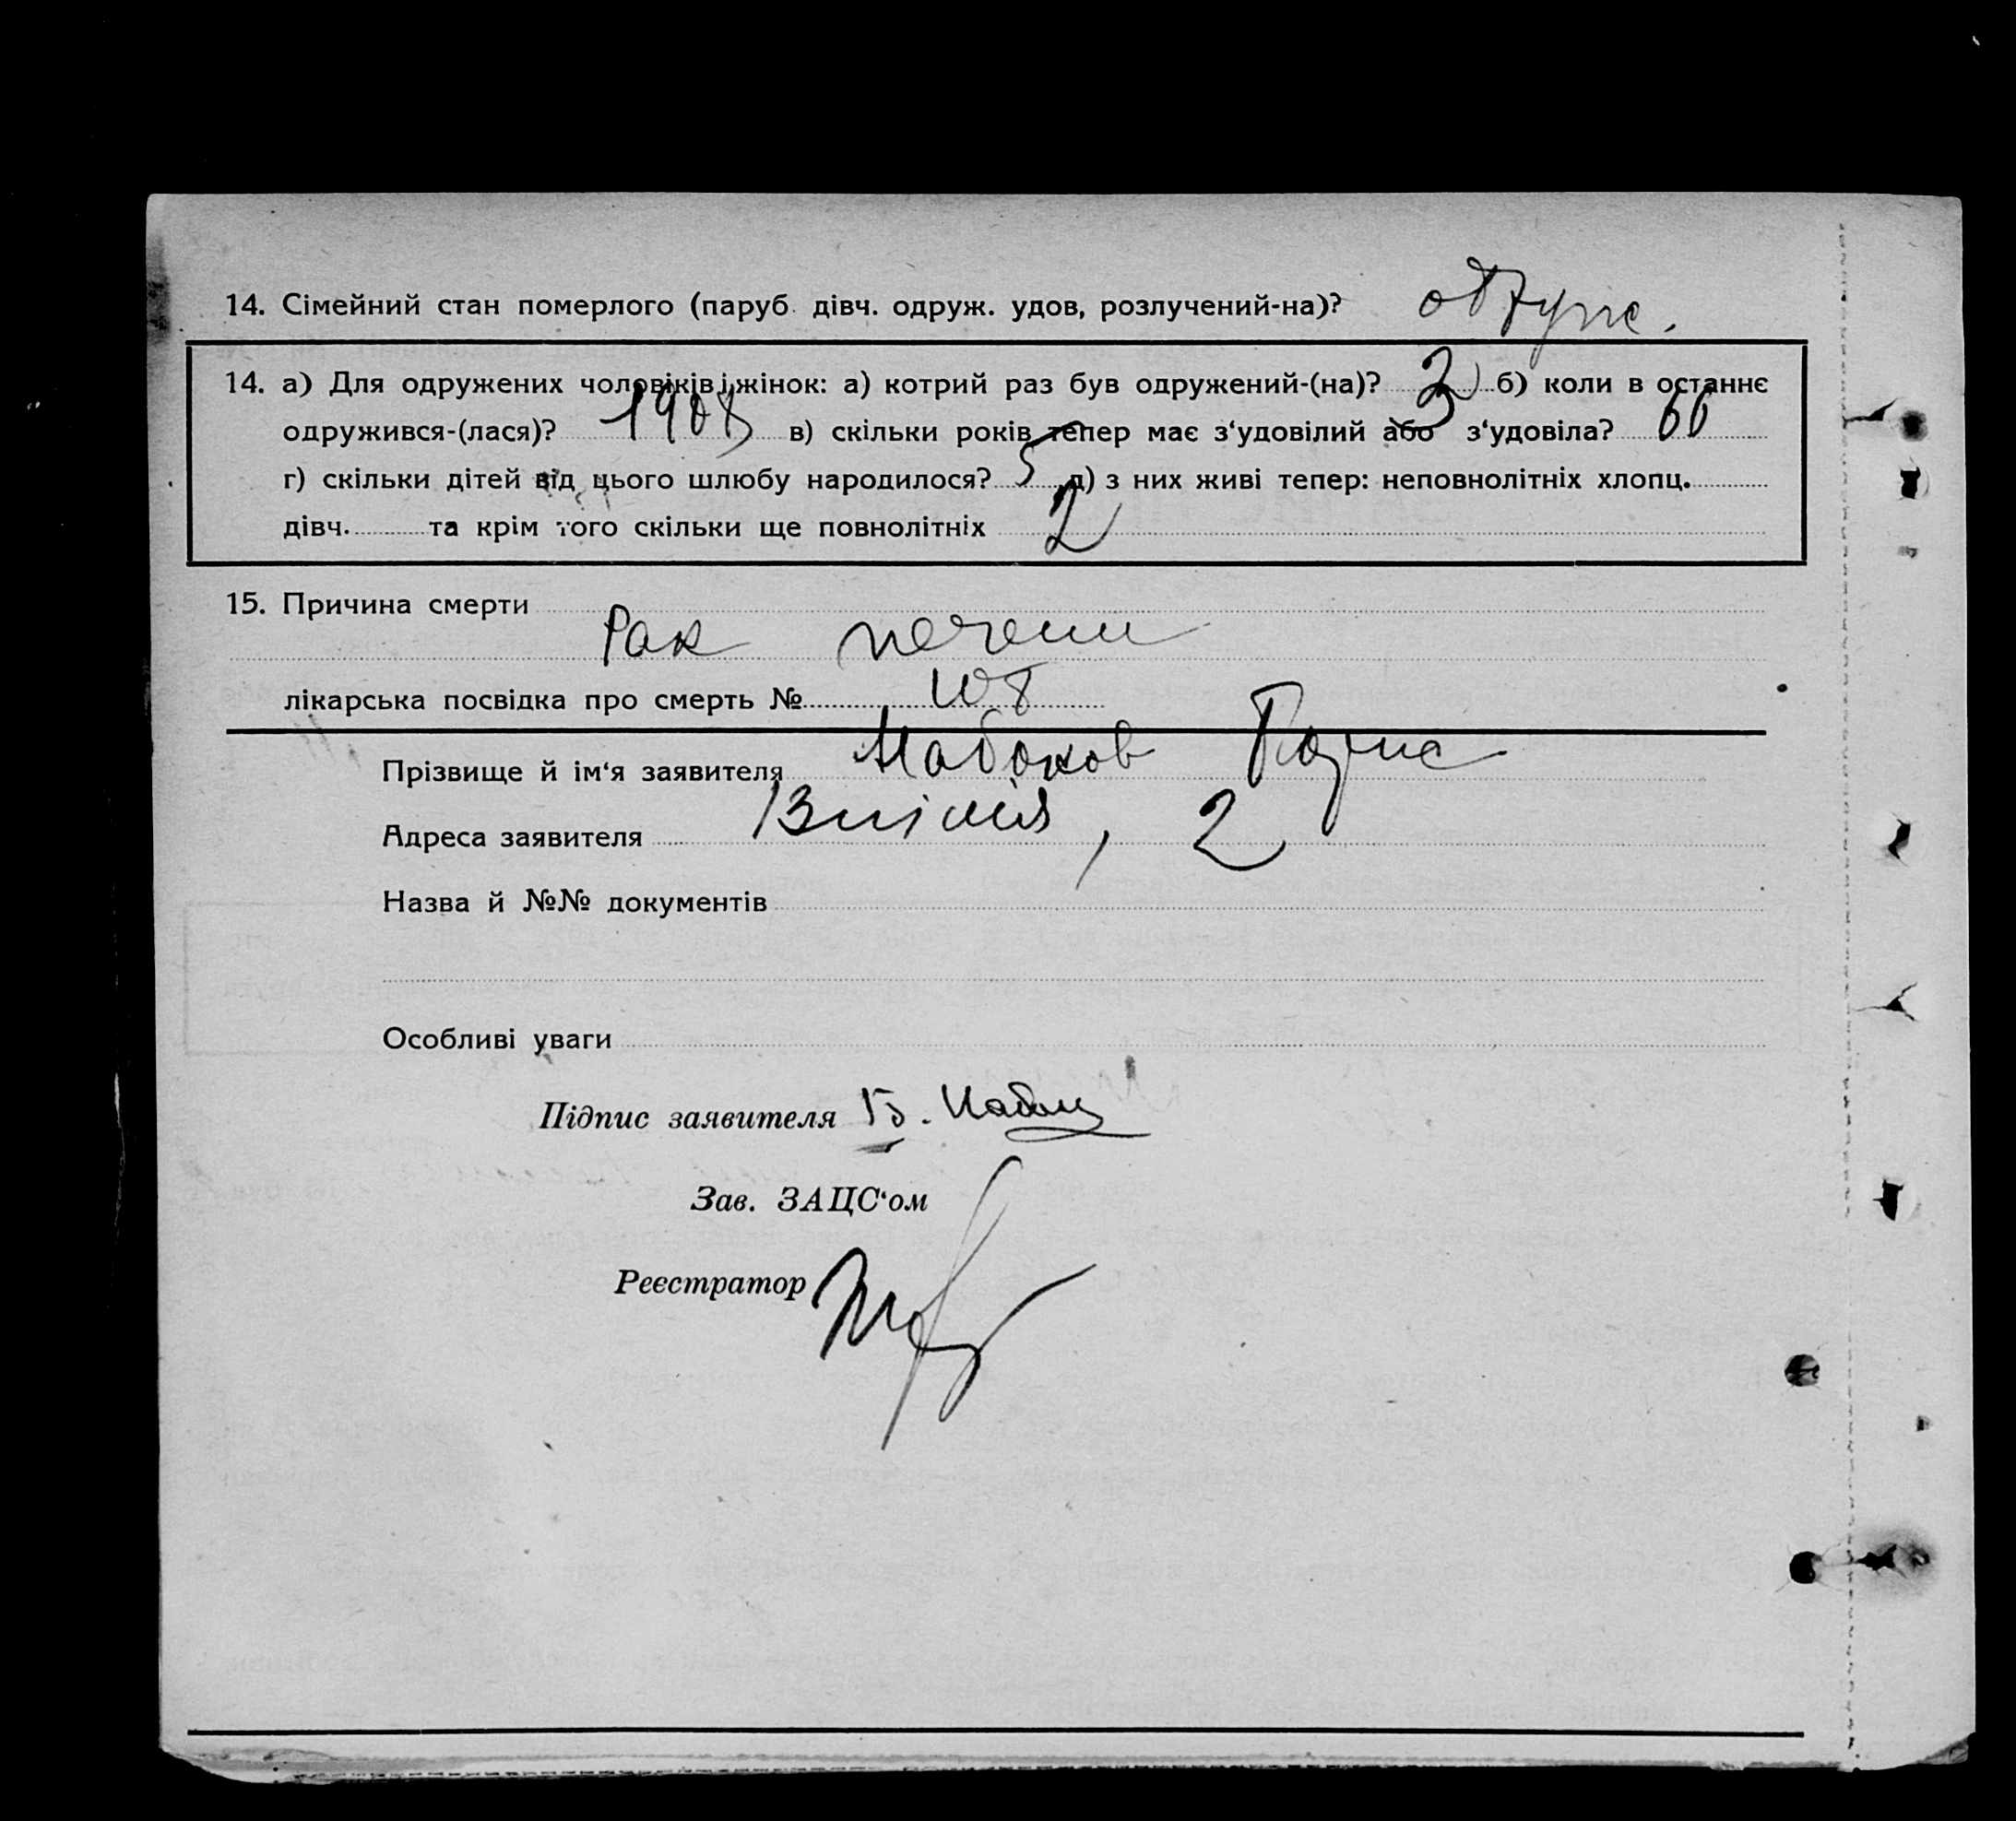 14. Сімейний стан померлого (паруб. дівч. одруж. удов, розлучений-на)?
14. а) Для одружених чоловіків і жінок: а) котрий раз був одружений-(на)? б) коли в останнє
одружився-(лася)? 1908 в) скільки років тепер має з‘удовілий або з‘удовіла? 66
г) скільки дітей від цього шлюбу народилося? 5 д) з них живі тепер: неповнолітніх хлопц.
дівч. та крім того скільки ще повнолітніх 2
15. Причина смерти
Рак печени
лікарська посвідка про смерть №
Прізвище й ім‘я заявителя Набоков
Адреса заявителя , 2
Назва й №№ документів
Особливі уваги
Підпис заявителя Б.
Зав. ЗАЦС‘ом
Реєстратор